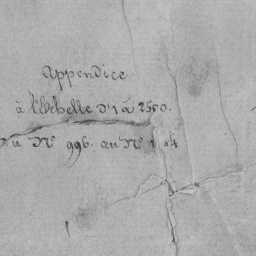 Appendice
à l'Echelle d'1 à 2500.
du N° 996. au N° 1